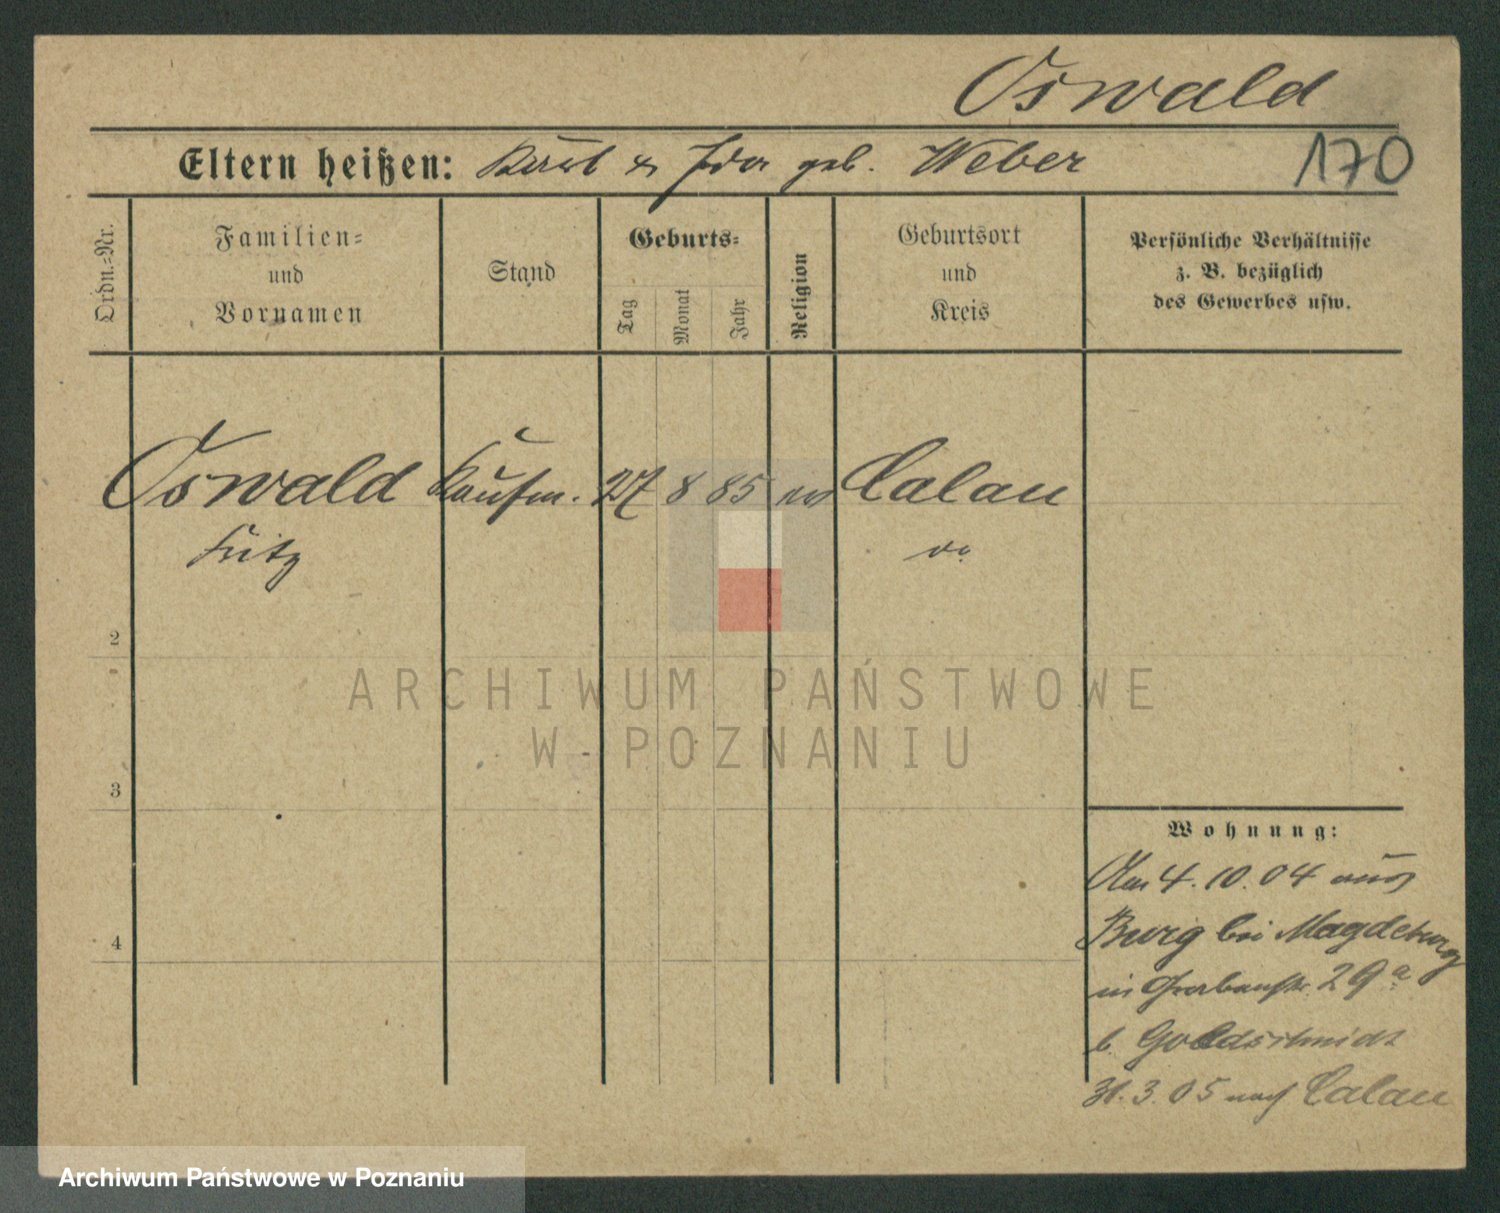 Oswald
Eltern heißen: & Ida geb. Weber
170
Ordn.-Nr.
Familien-
und
Vornamen
Stand
Geburts-
Tag
Monat
Jahr
Religion
Geburtsort
und
Kreis
Persönliche Verhältnisse
z. B. bezüglich
des Gewerbes usw.
Oswald Kaufm. 27 8 85 ev Calau
Fritz do.
2
3
4
Wohnung:
Am 4. 10. 04 aus
Burg bei Magdeburg
in 29a
b. Goldschmidt
31. 3. 05 nach Calau
ARCHIWUM PAŃSTWOWE
W POZNANIU
Archiwum Państwowe w Poznaniu